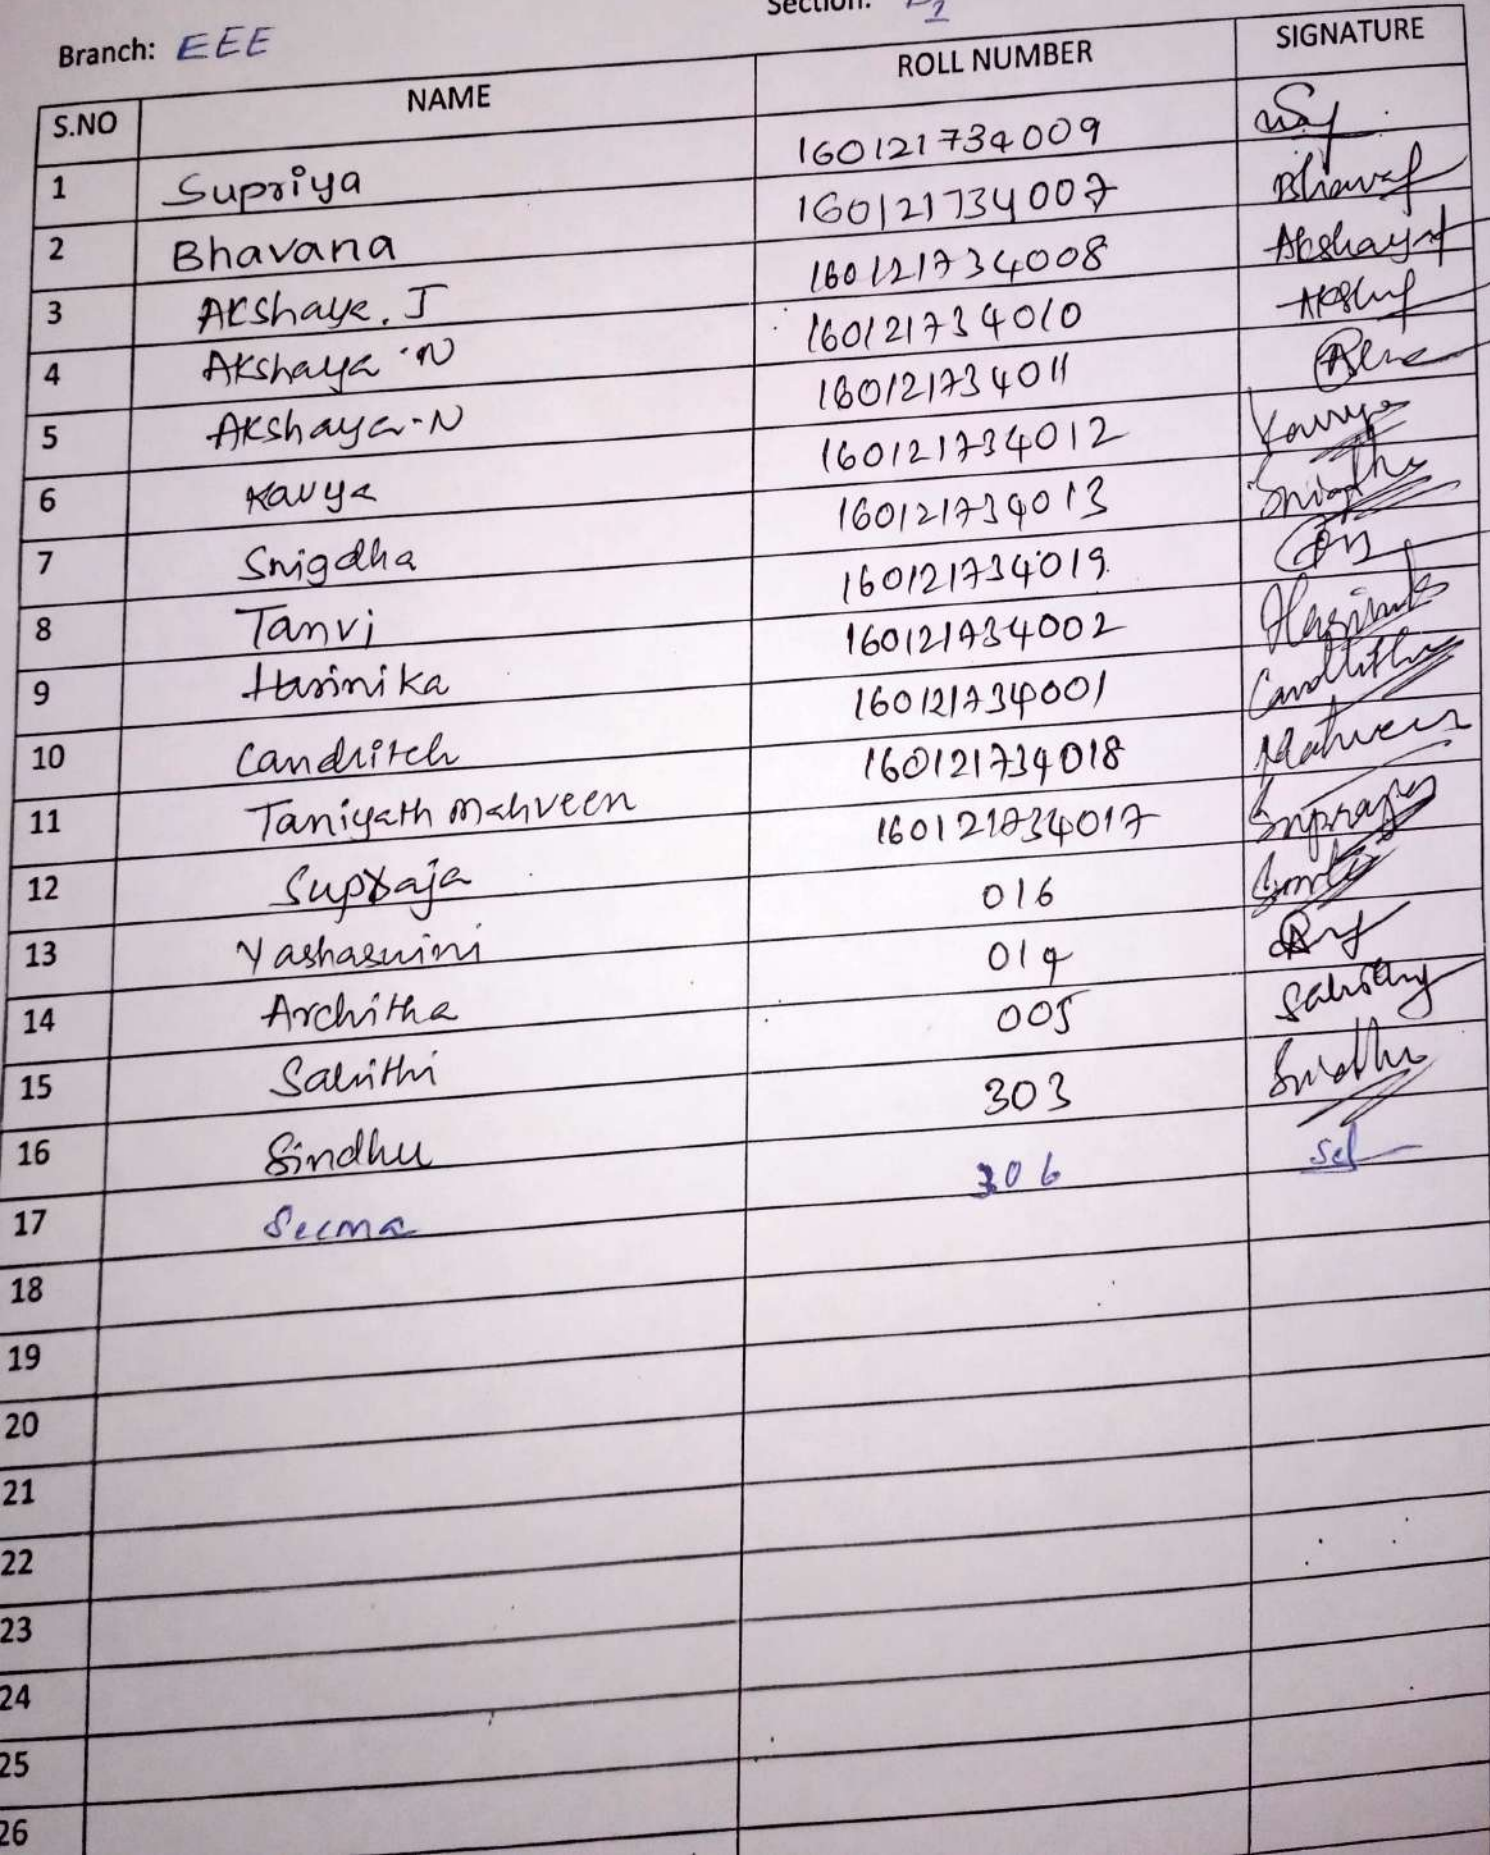 Section:
Branch: EEE
S.NO NAME ROLL NUMBER SIGNATURE
1 Supriya 160121734009
2 Bhavana 160121734007
3 Akshaya. J 160121734008
4 Akshaya . N 160121734010
5 Akshaya - N 160121734011
6 Kavya 160121734012 Kavya
7 Snigdha 160121734013 Snigdha
8 Tanvi 160121734019
9 Harinika 160121734002
10 160121734001
11 Taniyath Mahveen 160121734018 Mahveen
12 Supraja 160121734017 Supraja
13 Yashaswini 016
14 Architha 014
15 Sahithi 005
16 Sindhu 303 Sindhu
17 Seema 306
18
19
20
21
22
23
24
25
26